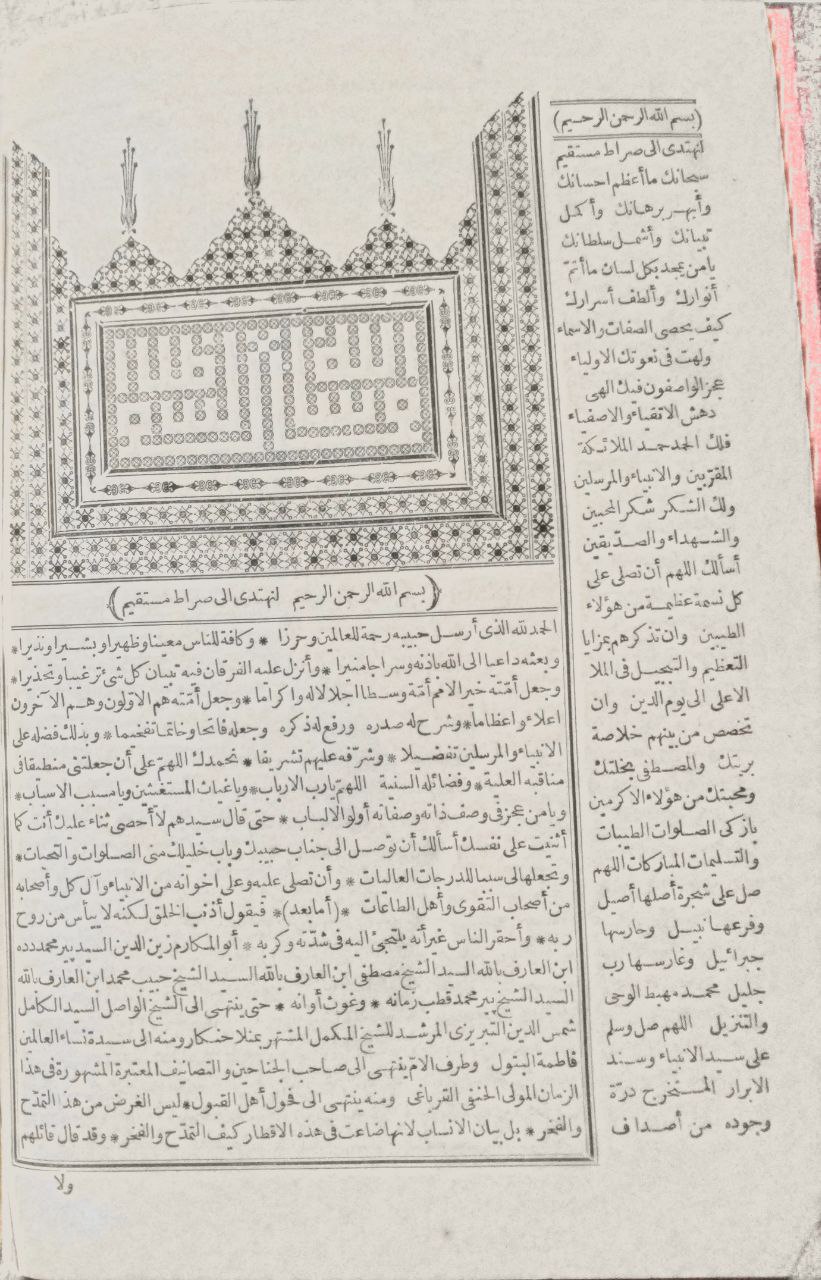 (بسم الله الرحمن الرحيم لنهتدى الى صراط مستقيم)
الحمد لله الذى أرسل حبيبه رحمة للعالمين وحرزا * وكافة للناس معينا وظهيرا وبشيرا ونذيرا*
وبعثه داعيا الى الله باذنه وسراجا منيرا * وأنزل عليه الفرقان فيه تبيان كل شئ ترغيبا وتحذيرا*
وجعل أمّته خير الامم أمّة وسطا اجلالا له واكراما* وجعل أمّته هم الاوّلون وهم الآخرون
اعلاء واعظاما* وشرح له صدره ورفع له ذكره وجعله فاتحا وخاتما تفخيما * وبذلك فضله على
الانبياء والمرسلين تفضيلا * وشرّفه عليهم تشريفا * نحمدك اللهمّ على أن جعلتنى منطبقا فى
مناقبه العلية* وفضائله السنية اللهمّ يا رب الارباب* ويا غياث المستغيثين ويا مسبب الاسباب*
ويا من عجز فى وصف ذاته وصفاته أولو الالباب * حتى قال سيدهم لا أحصى ثناء عليك أنت كما
أثنيت على نفسك أسألك أن توصل الى جناب حبيبك وباب خليلك منى الصلوات والتحيات*
وتجعلها لى سببا للدرجات العاليات * وأن تصلى عليه وعلى اخوانه من الانبياء وآل كل وأصحابه
من أصحاب التقوى وأهل الطاعات *(أما بعد)* فيقول أذنب الخلق لكنه لا ييأس من روح
ربه* وأحقر الناس غير أنه يلتجئ اليه فى شدّته وكربه * أبو المكارم زين الدين السيد پير محمد دده
ابن العارف بالله السيد الشيخ مصطفى ابن العارف بالله السيد الشيخ حبيب محمد ابن العارف بالله
السيد الشيخ پير محمد قطب زمانه * وغوث أوانه * حتى ينتهى الى الشيخ الواصل السيد الكامل
شمس الدين التبريزى المرشد للشيخ المكمل المشتهر بمنلا خنكار ومنه الى سيدة نساء العالمين
فاطمة البتول وطرف الامّ ينتهى الى صاحب الجناحين والتصانيف المعتبرة المشهورة فى هذا
الزمان المولى الحنفى القرباغى ومنه ينتهى الى فحول أهل القبول* ليس الغرض من هذا التمدّح
والفخر* بل بيان الانساب لانها ضاعت فى هذه الاقطار كيف التمدّح والفخر* وقد قال قائلهم
ولا
(بسم الله الرحمن الرحيم)
لنهتدى الى صراط مستقيم
سبحانك ما أعظم احسانك
وأبهر برهانك وأكمل
تبيانك وأشمل سلطانك
يا من يمجد بكل لسان ما أتمّ
أنوارك وألطف أسرارك
كيف يحصى الصفات والاسماء
ولهت فى نعوتك الاولياء
عجز الواصفون فيك الهى
دهش الاتقياء والاصفياء
فلك الحمد حمد الملائكة
المقرّبين والانبياء والمرسلين
ولك الشكر شكر المحبين
والشهداء والصدّيقين
أسألك اللهم أن تصلى على
كل نسمة عظيمة من هؤلاء
الطيبين وان تذكرهم بمزايا
التعظيم والتبجيل فى الملا
الاعلى الى يوم الدين وان
تخصص من بينهم خلاصة
بريتك والمصطفى بخلتك
ومحبتك من هؤلاء الاكرمين
بازكى الصلوات الطيبات
والتسليمات المباركات اللهم
صل على شجرة أصلها أصيل
وفرعها نبيل وحارسها
جبرائيل وغارسها رب
جليل محمد مهبط الوحى
والتنزيل اللهم صل وسلم
على سيد الانبياء وسند
الابرار المستخرج درّة
وجوده من أصداف